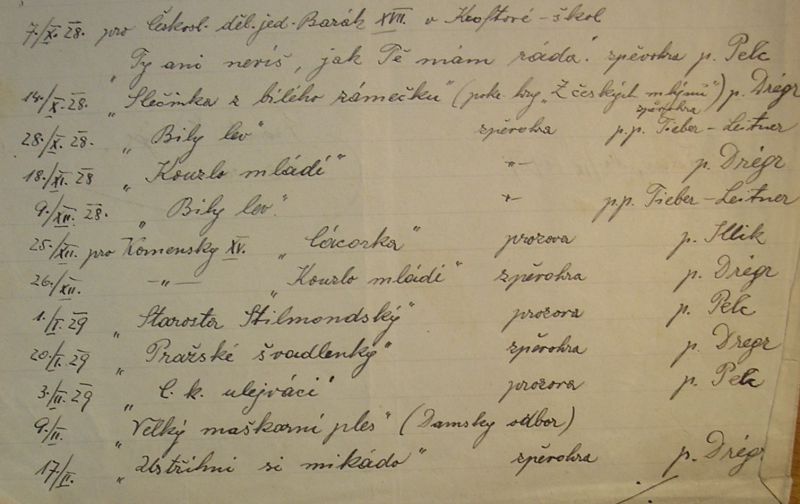 7./X. 28. pro Českosl. děl. jed. Barák XVII. v Kroftově-škol
„Ty ani nevíš, jak Tě mám ráda." zpěvohra p. Pelc
14./X. 28. „Slečinka z bílého zámečku" (pokr. hry „Z českých mlýnů") zpěvohra p. Drégr
28./X. 28. „Bily lev" zpěvohra p.p. Tieber-Leitner
18./XI. 28 „Kouzlo mládí" -"- p. Drégr
9./XII. 28. „Bily lev." -"- p.p. Tieber-Leitner
25./XII. pro Komensky XV. „Cácorka" prozova p. Illik
26./XII. -"- „Kouzlo mládí" zpěvohra p. Drégr
1./I. 29 „Starosta Stilmondský" prozova p. Pelc
20./I. 29 „Pražské švadlenky" zpěvohra p. Drégr
3./II. 29 „C. k. ulejváci" prozova p. Pelc
9./II. „Velký maškarní ples" (Damsky odbor)
17/II. „Ustřihni si mikádo" zpěvohra p. Drégr